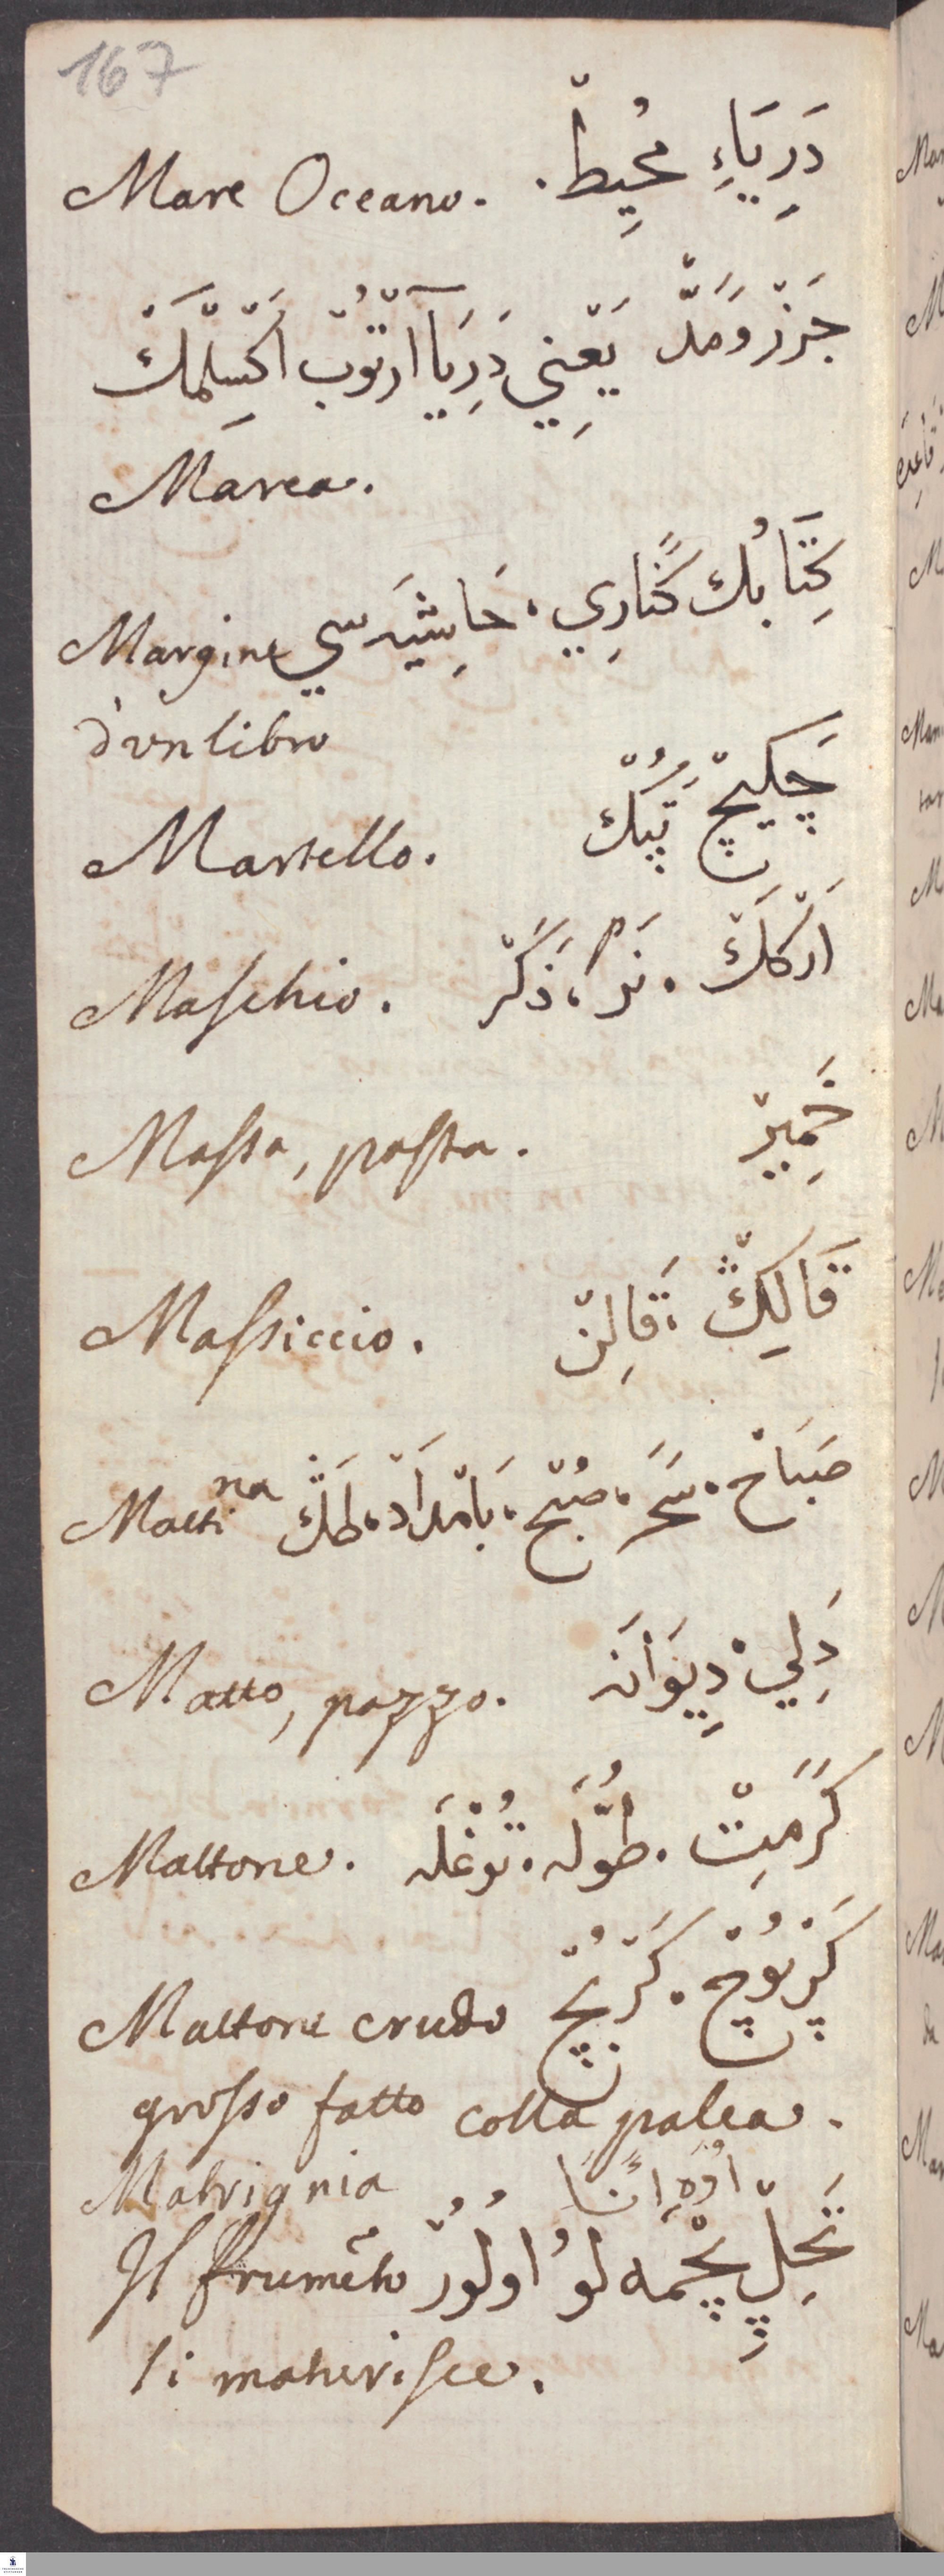 167
Mare Oceano. دَرِيَاءِ مُحِيطْ.
جَزْر وَمَدّ يَعْنِي دَرِيَا آرْتُوبْ اَكْسِلْمَكْ
Marea.
Margine كِتَابُك كَنَارِي، حَاشِيَه سي
d'vn libro
Martello. چَكِيچْ
Maschio. اَرْكَكْ . نَرْ، ذَكَرْ
Massa, pasta. خَمِيرْ
Massiccio. قَالِڭْ، قَالِنْ
Mattina صَبَاحْ . سَحَر . صُبْحْ . بَامْدَادْ . طَڭْ
Matto, pazzo. دَلِي، دِيوَانَه
Mattone. كَرَمِتْ . طُوَّلَه . تُوغْلَه
Mattone crudo كَرْپُوچْ . كَرْپُچْ
grosso fatto colla palea.
Matrignia اُوَه اَنَا
Il frumẽto لُو اُولُورْ
si maturisce.